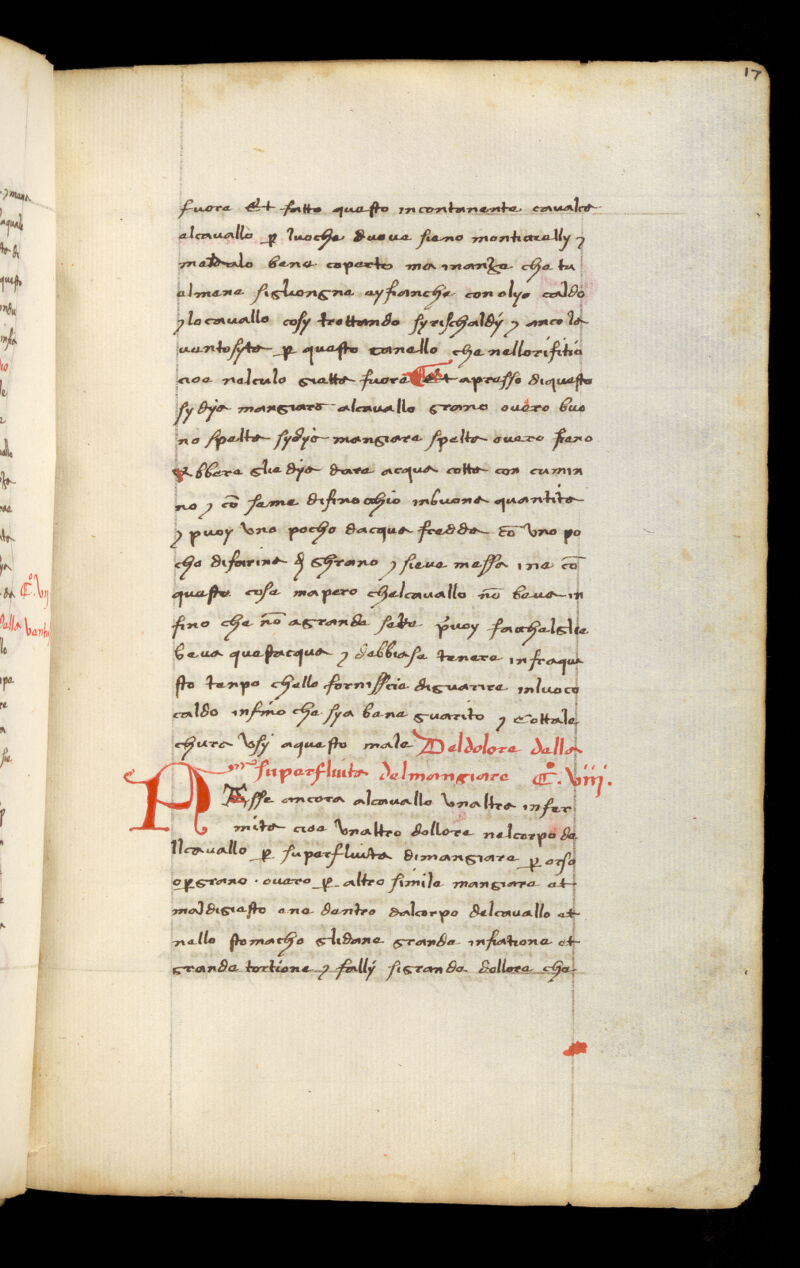 17
fuore Et fatto questo incontanente cavalca
elcavallo p luoche dueve sieno monticelly ⁊
menalo bene coperto ma inanze che tu
elmene sigliongne ey fianche con olyo caldo
⁊ lo cavallo cosy trottando sy rischaldy ⁊ anco la
ventosyta p questo canello che nello rifitio
cioe nelculo gietta fuore Et apresso di questo
sy dya mangiare alcavallo grano overo buo
no spelta sydya mangiare spelta overo fieno
Et bbere glie dya dare acqua cotta con cumin
no ⁊ cō seme di finochio inbuona quantita
⁊ puoy uno pocho dacqua fredda cō uno po
cho di farina di ghrano ⁊ sieve messa ine cō
queste cose ma pero chelcavallo nō beva in
fino che nō a grande sete puoy fa chelglie
beva quest acqua ⁊ debbiase tenere infraque
sto tenpo chello fornisscie diguarire inluoco
caldo infino che sya bene guarito ⁊ cottale
chura usy aquesto male Del dolore della
superfluita del mangiare C°. Viiij.
Asse ancora alcavallo unaltra infer
mita cioe unaltro dollore nelcorpo de
llcavallo p superfluita dimangiare p orso
o p grano · overo p altro simile mangiare et
maldigiesto ene dentro dalcorpo delcavallo et
nello stomacho glidane grande infiatione et
grande tortione ⁊ fally sigrande dollore che